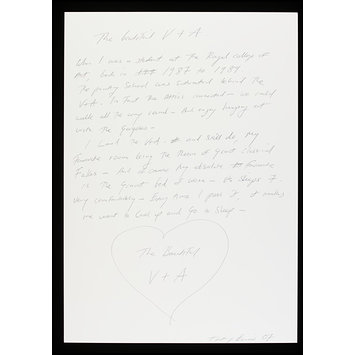 The Beautiful V + A
When I was a student at The Royal college of
Art, back in 1987 to 1989.
The painting School was situated behind the
V+A. In fact the attics connected - we could
walk all the way round - And enjoy hanging out
with the
I Loved the V+A. and still do. My
favourite room being the Room of Great classical
Fakes - But of course My absolute favourite
is The Great bed of ware - It sleeps 7
very comfortably - Every time I pass it, it makes
me want to curl up and Go to Sleep -
The Beautiful
V + A